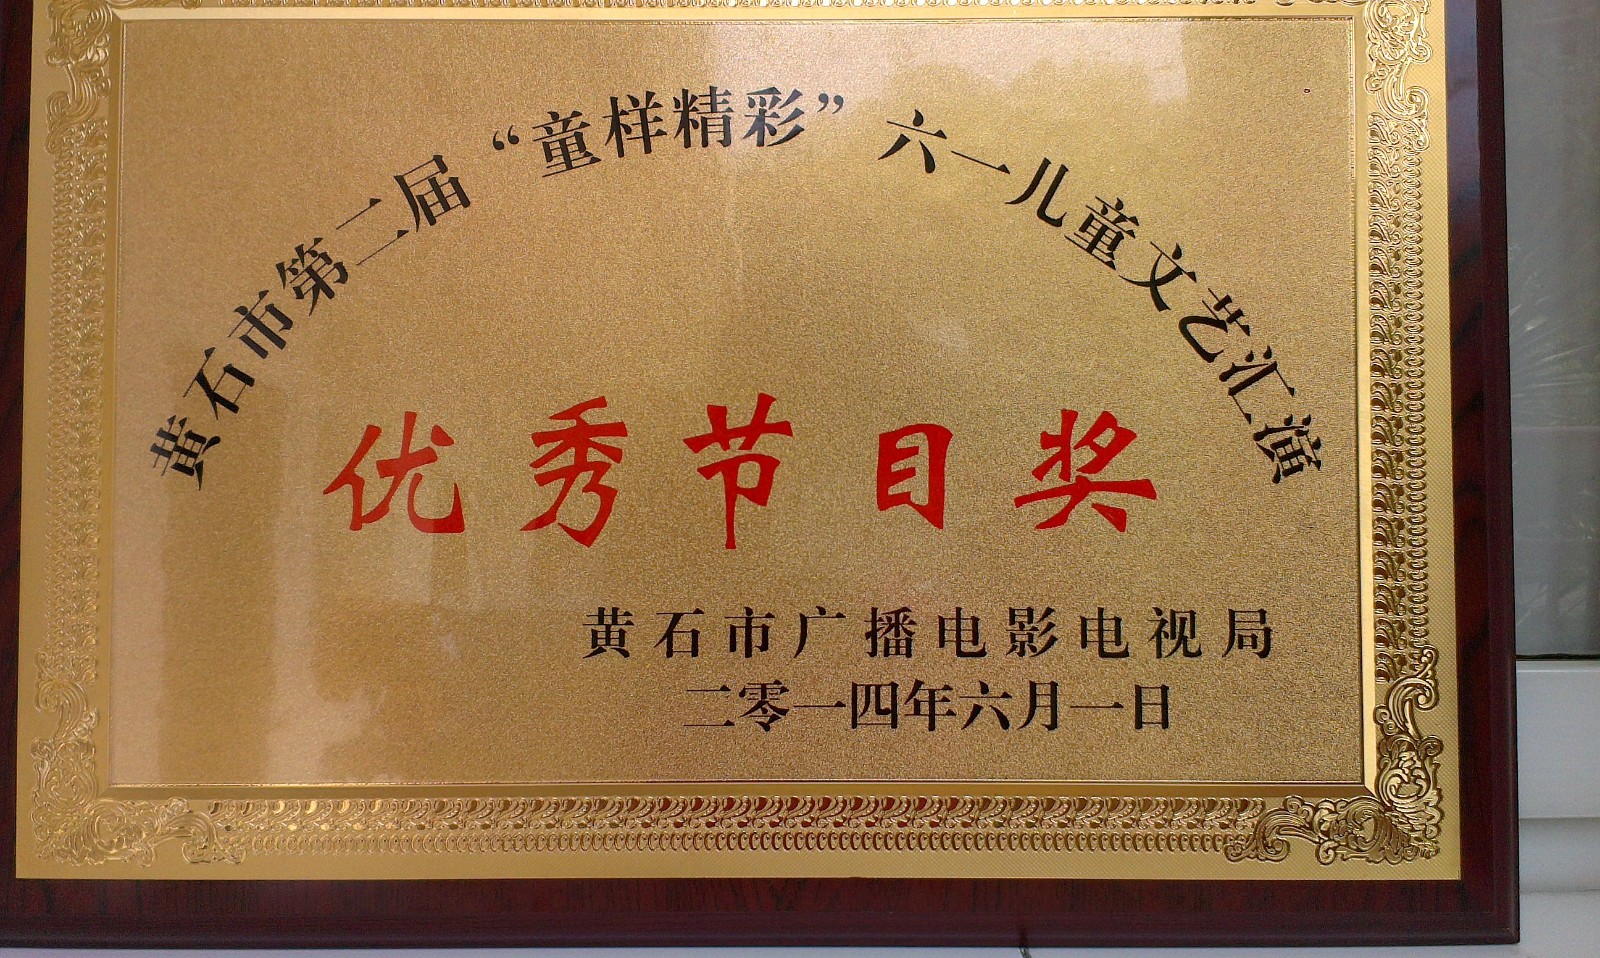 黄石市第二届“童样精彩”六一儿童文艺汇演
优秀节目奖
黄石市广播电影电视局
二零一四年六月一日